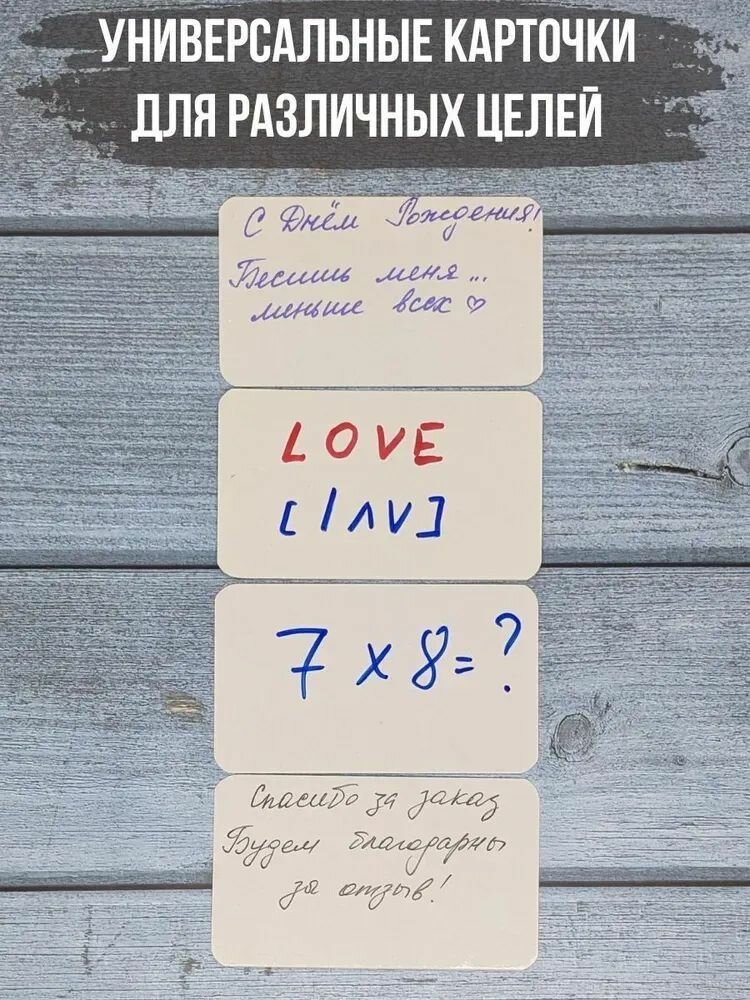 УНИВЕРСАЛЬНЫЕ КАРТОЧКИ
ДЛЯ РАЗЛИЧНЫХ ЦЕЛЕЙ
С Днём Рождения!
Бесишь меня...
меньше всех ♡
LOVE
[lʌv]
7 x 8 = ?
Спасибо за заказ
Будем благодарны
за отзыв!